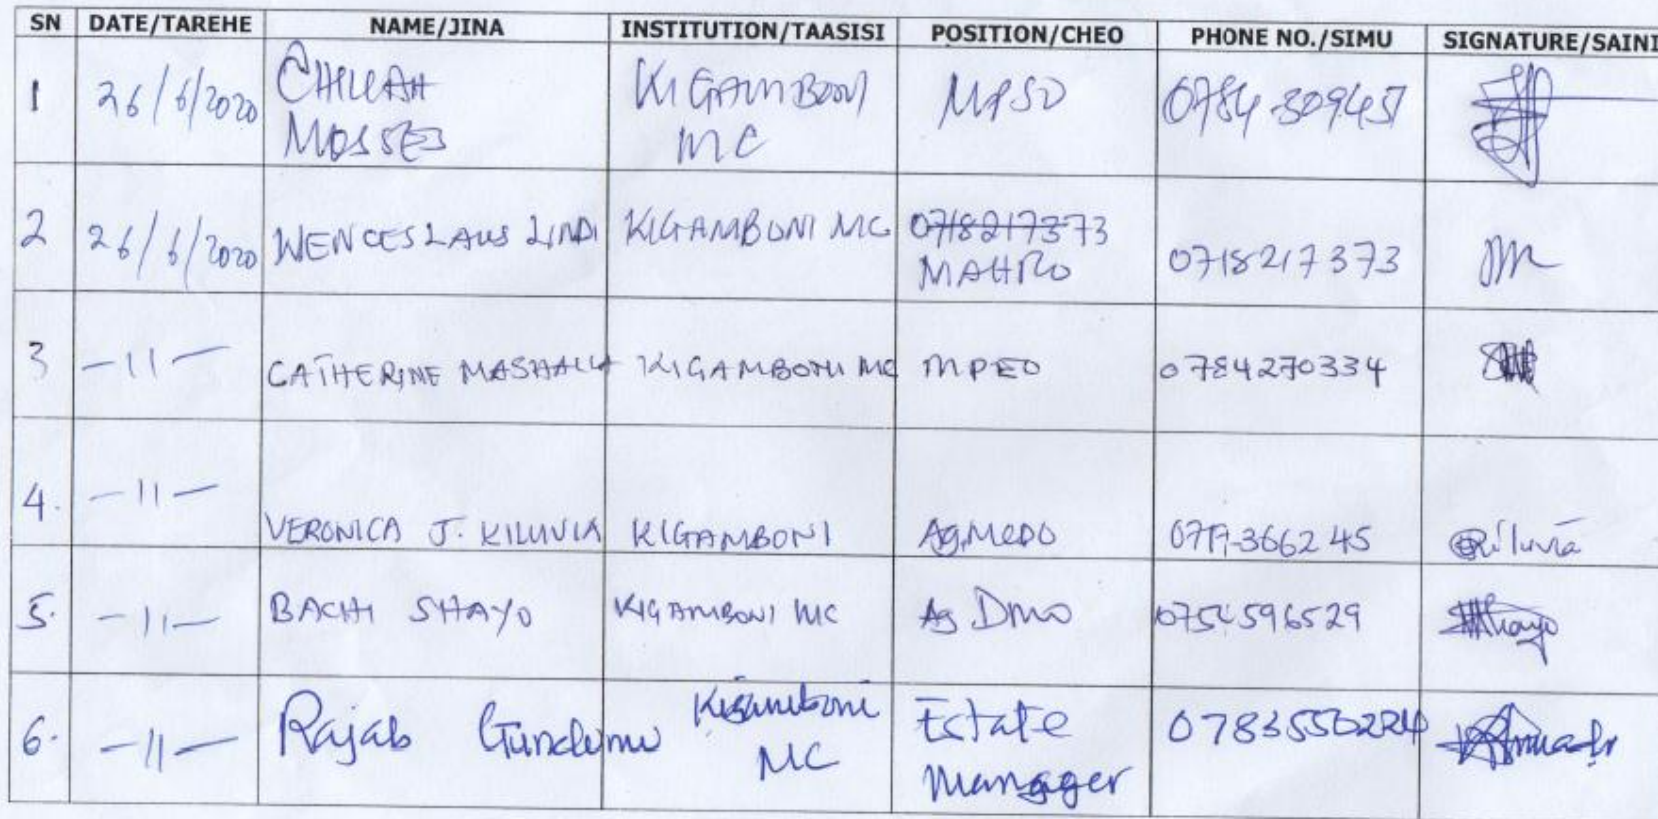 SN DATE/TAREHE NAME/JINA INSTITUTION/TAASISI POSITION/CHEO PHONE NO./SIMU SIGNATURE/SAINI
1 26/6/2020 MOSSES KIGAMBONI MC MPSO 0784 309457
2 26/6/2020 WENCESLAUS LINDI KIGAMBONI MC 0718217373 MAHRO 0718217373
3 -11- CATHERINE MASHALLA KIGAMBONI MC MPEO 0784270334
4. -11- VERONICA J. KILUVIA KIGAMBONI Ag.MEDO Kiluvia
5. -11- BACHI SHAYO KIGAMBONI MC Ag DMO 0754596529 Shayo
6. -11- Rajab Kigamboni MC Estate Manager